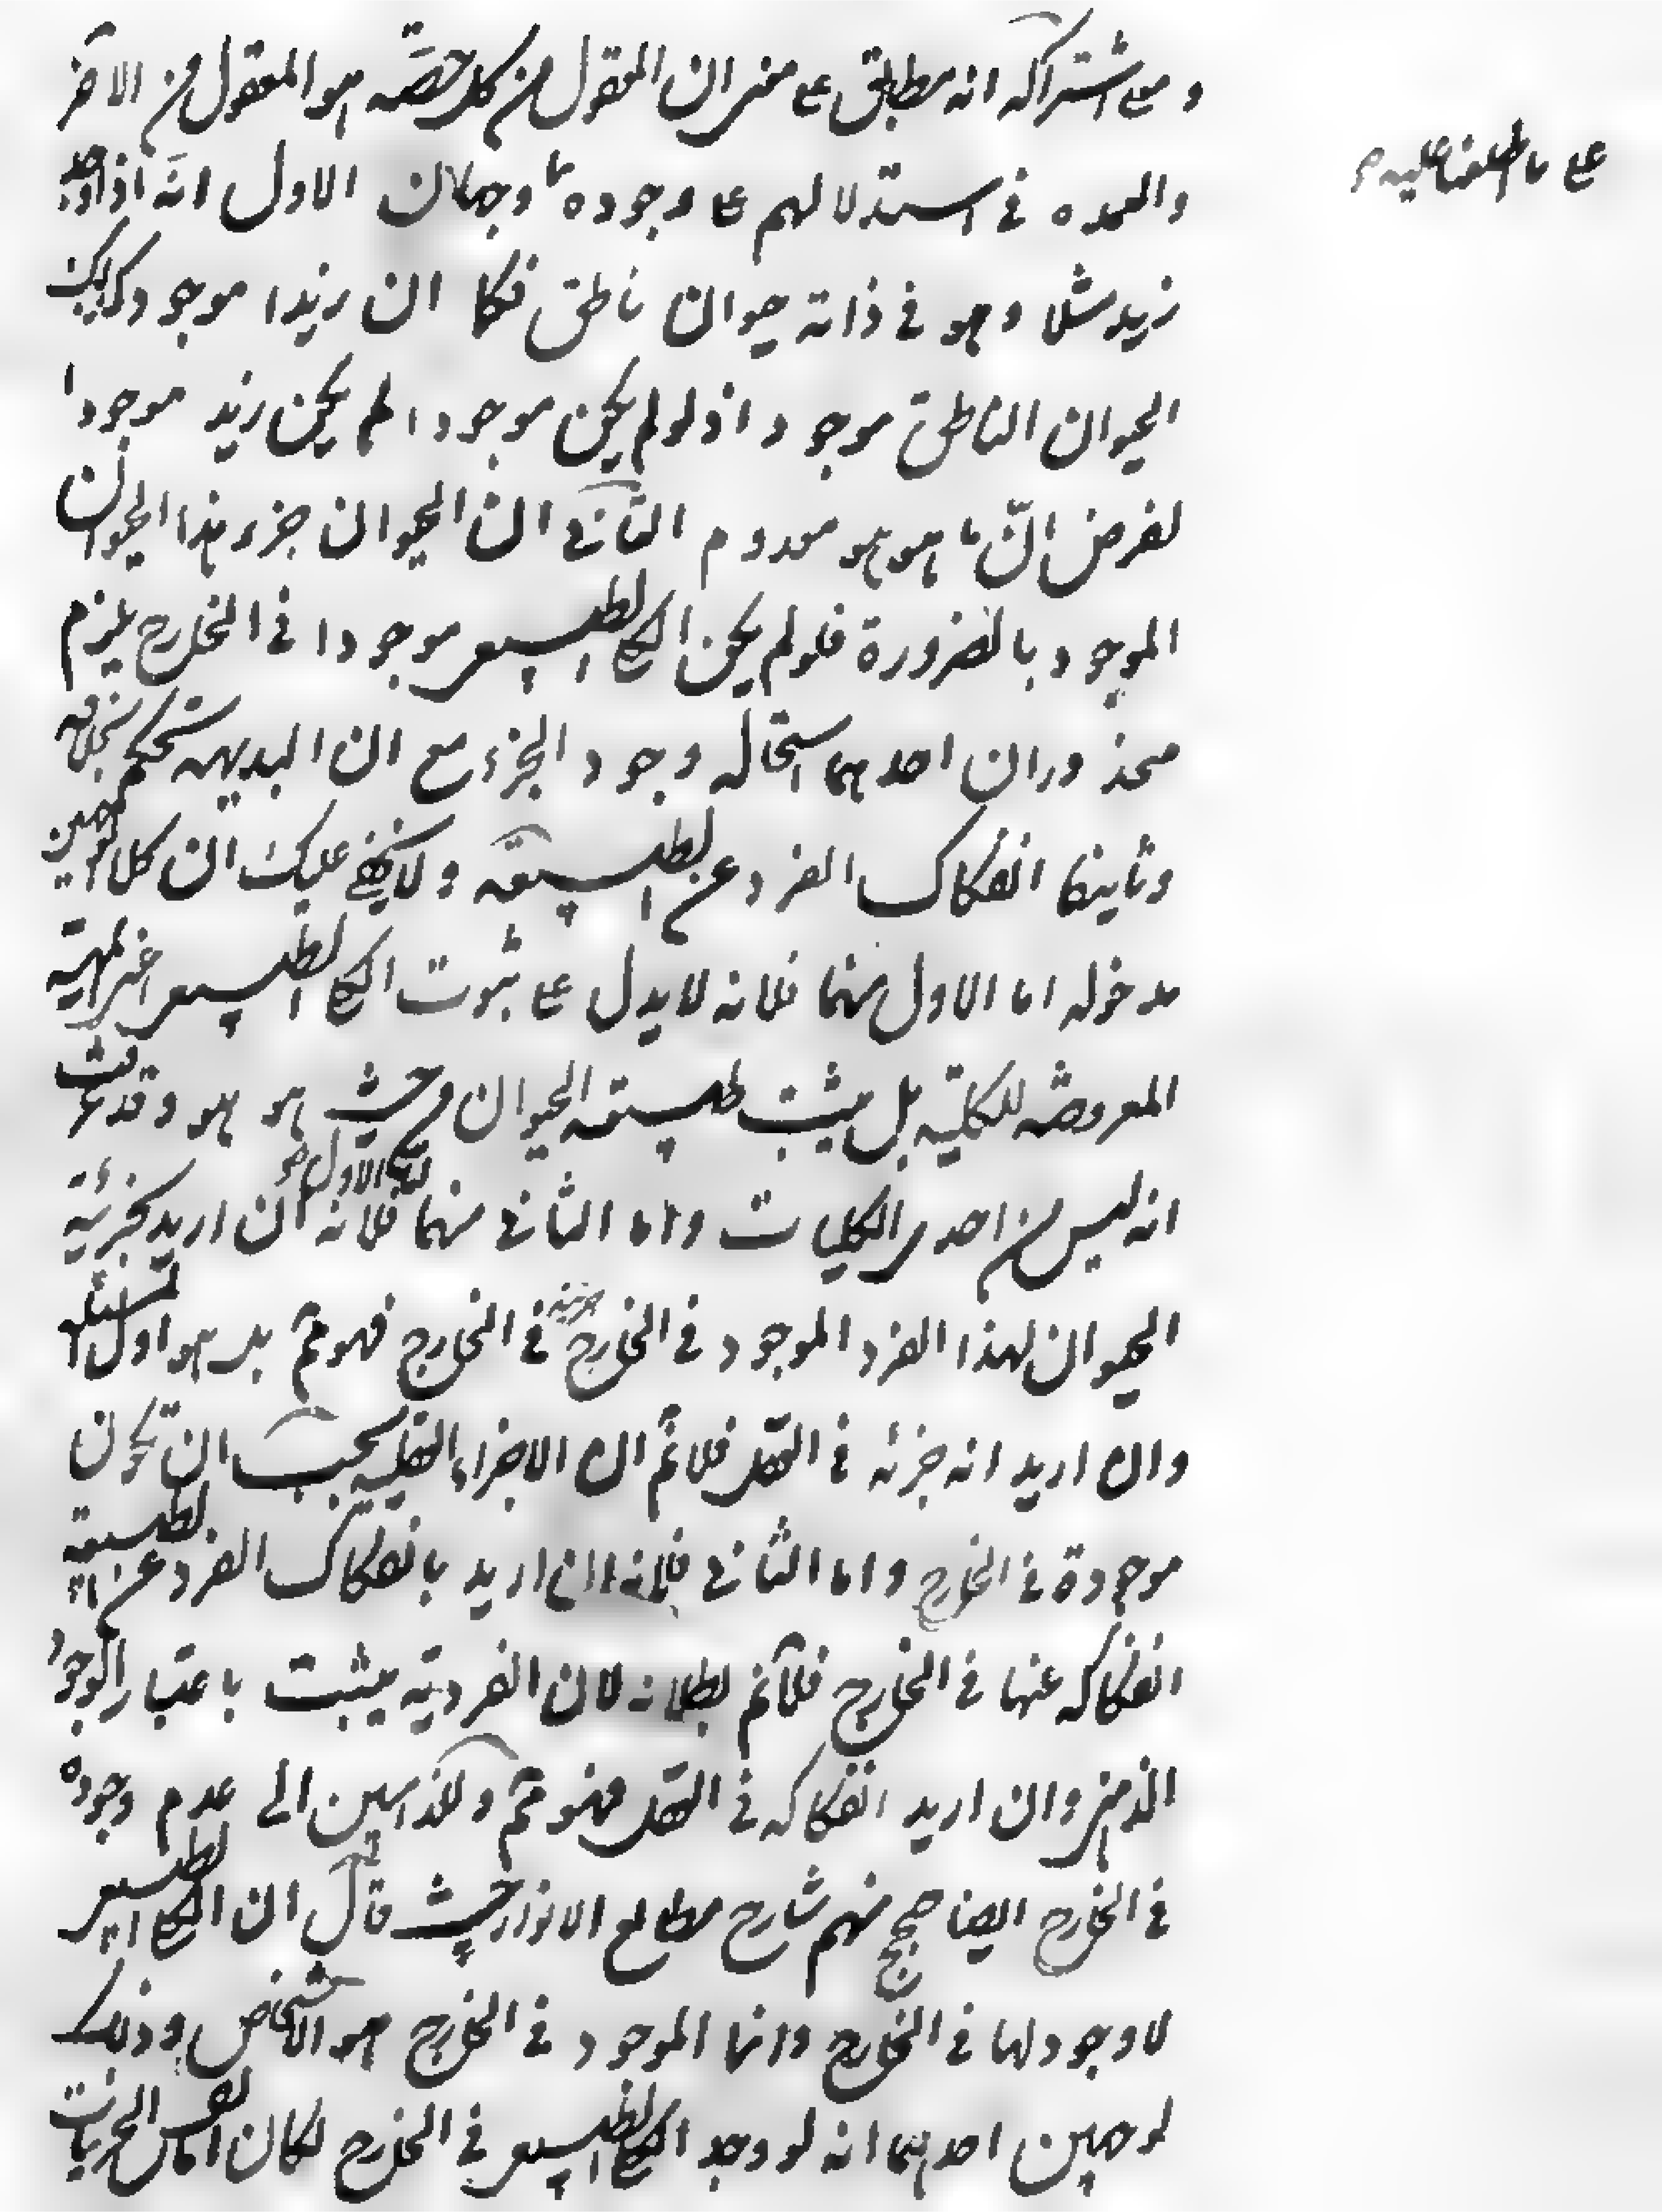 ومعنى اشتراكه انه مطابق على معنى ان المعقول من كل حصة هو المعقول من الآخر
على ما اطلعنا عليه
والعمدة في استدلالهم على وجوده وجهان الاول انه اذا وجد
زيد مثلا وهو في ذاته حيوان ناطق فكما ان زيدا موجود كذلك
الحيوان الناطق موجود اذ لو لم يكن موجودا لم يكن زيد موجودا
لفرض ان ما هو هو معدوم الثاني ان الحيوان جزء هذا الحيوان
الموجود بالضرورة فلو لم يكن الكلي الطبيعي موجودا في الخارج يلزم
محذوران احدهما استحاله وجود الجزء مع ان البديهة تحكم بخلافه
وثانيهما انفكاك الفرد عن الطبيعة ولا يخفى عليك ان كلا الوجهين
مدخوله اما الاول منهما فلانه لا يدل على ثبوت الكلي الطبيعي اعني المهية
المعروضة للكلية بل يثبت طبيعة الحيوان من حيث هو هو وقد عرفت
انه ليس من احدى الكليات واما الثاني منهما فلانه الاول هو ان اريد بجزئية
الحيوان لهذا الفرد الموجود في الخارج جزئيته في الخارج فهو مم بل هو اول المسئلة
وان اريد انه جزئه في العقل فلانم ان الاجزاء العقلية يجب ان تكون
موجودة في الخارج واما الثاني فلانه ان اريد بانفكاك الفرد عن الطبيعة
انفكاكه عنها في الخارج فلانم بطلانه لان الفردية يثبت باعتبار الوجود
الذهني وان اريد انفكاكه في العقل فهو مم وللذاهبين الى عدم وجوده
في الخارج ايضا حجج منهم شارح مطالع الانوار حيث قال ان الكلي الطبيعي
لا وجود لها في الخارج وانما الموجود في الخارج هو الاشخاص وذلك
لوجهين احدهما انه لو وجد الكلي الطبيعي في الخارج لكان اما نفس الجزئيات